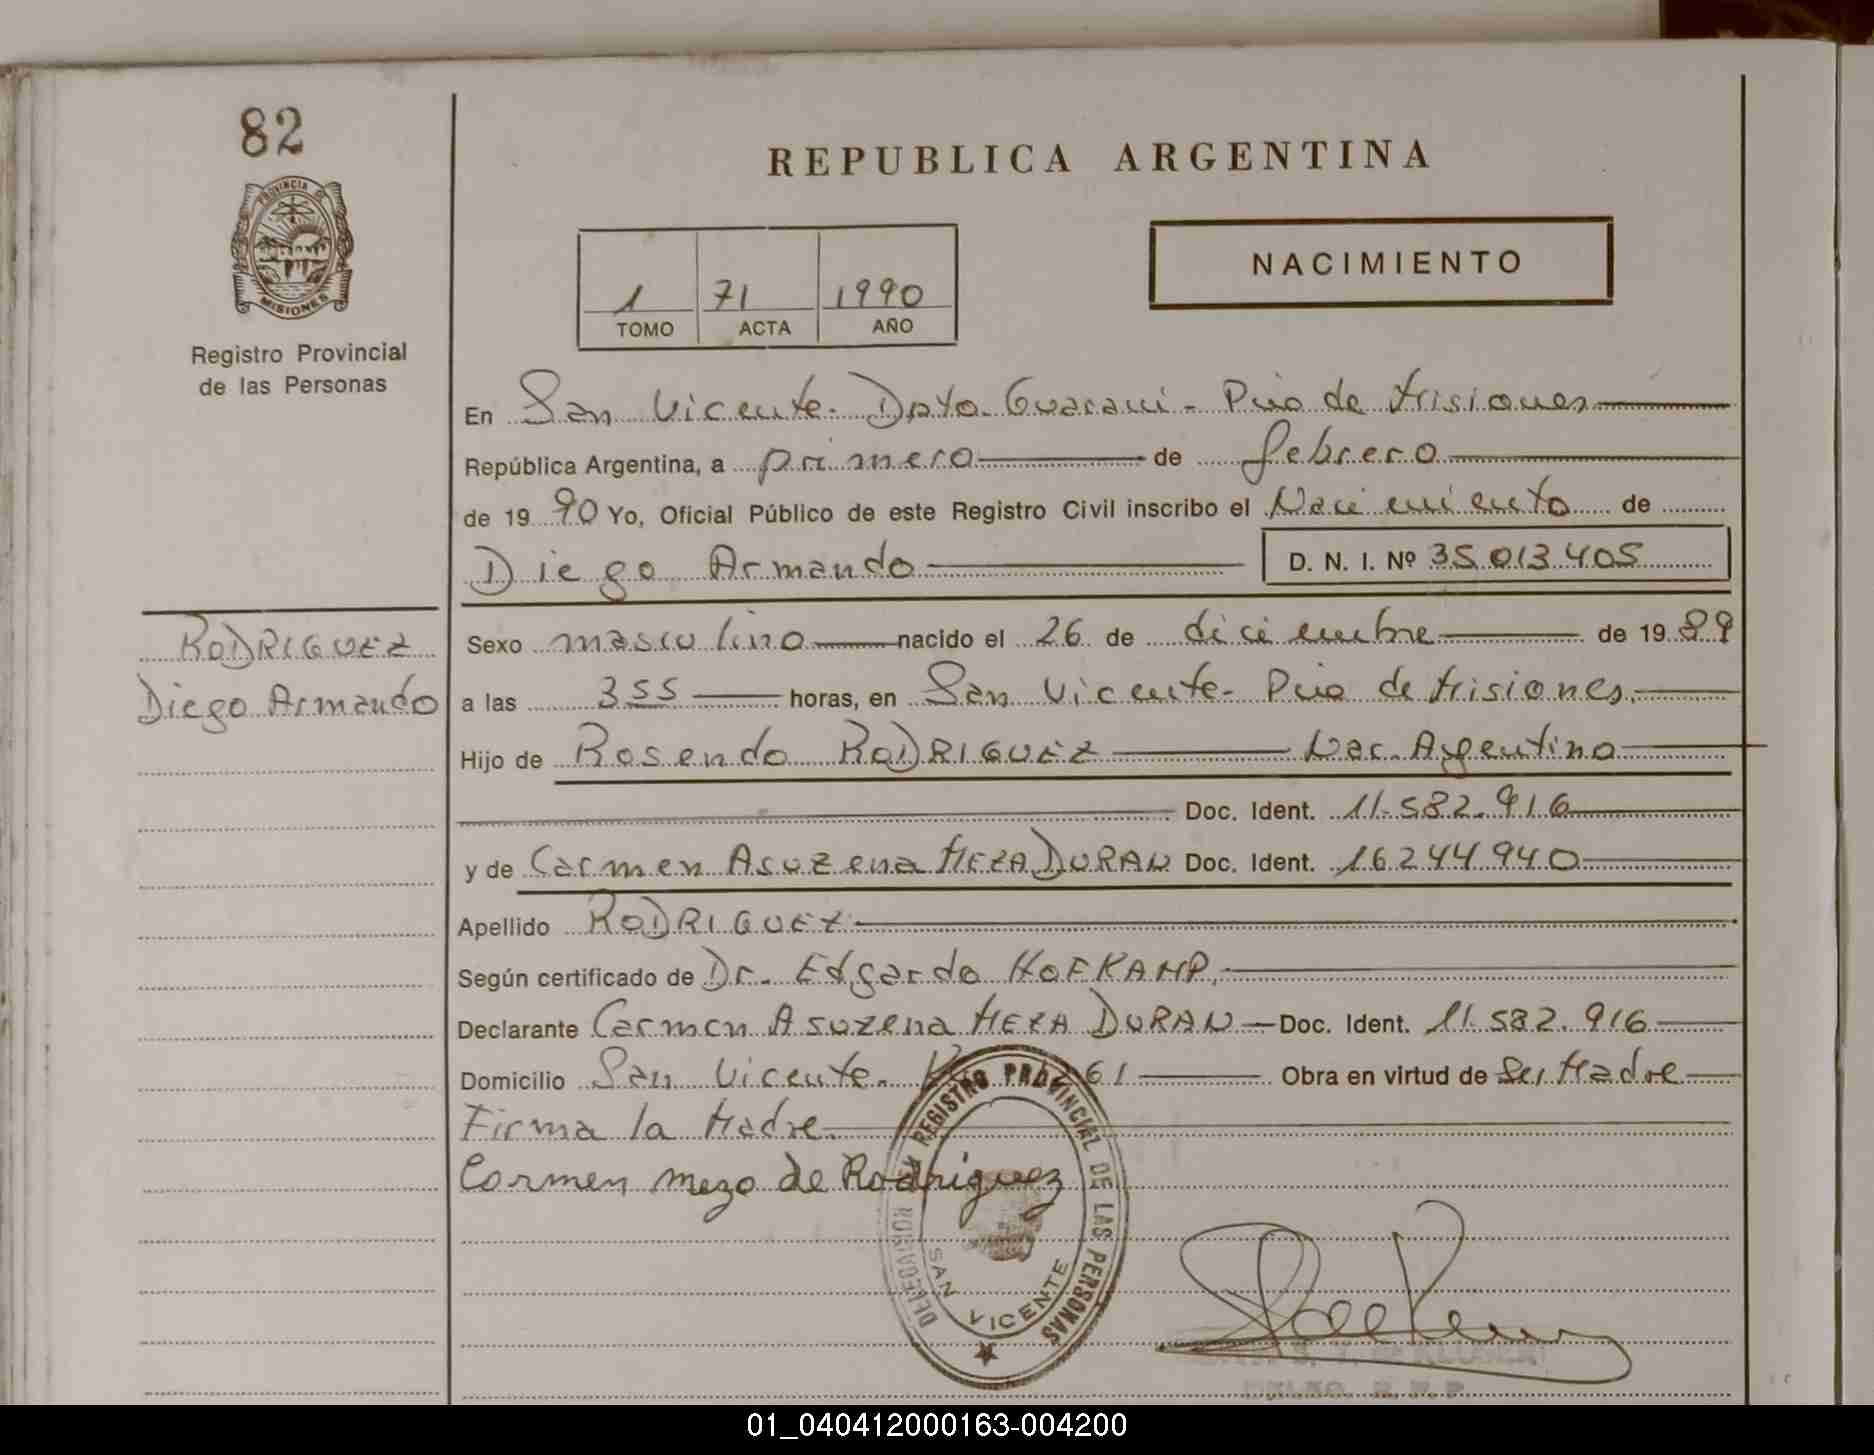 82
PROVINCIA DE
MISIONES
Registro Provincial
de las Personas
RODRIGUEZ
Diego Armando
REPUBLICA ARGENTINA
NACIMIENTO
1 71 1990
TOMO ACTA AÑO
En San Vicente. Dpto. Guarani - Pcia de Misiones
República Argentina, a primero de febrero
de 1990 Yo, Oficial Público de este Registro Civil inscribo el Nacimiento de
Diego Armando D. N. I. Nº 35.013.405
Sexo masculino nacido el 26 de diciembre de 1989
a las 3 55 horas, en San Vicente - Pcia de Misiones.
Hijo de Rosendo RODRIGUEZ Nac. Argentino
Doc. Ident. 11.582.916
y de Carmen Asuzena MEZA DURAN Doc. Ident. 16.244.940
Apellido RODRIGUEZ
Según certificado de Dr. Edgardo HOFKAMP.
Declarante Carmen Asuzena MEZA DURAN Doc. Ident. 11.582.916
Domicilio San Vicente. 61 Obra en virtud de Ser Madre
Firma la Madre.
Carmen meza de Rodriguez
DELEGACION REGISTRO PROVINCIAL DE LAS PERSONAS
SAN VICENTE
DELEG. R. P. P.
01_040412000163-004200